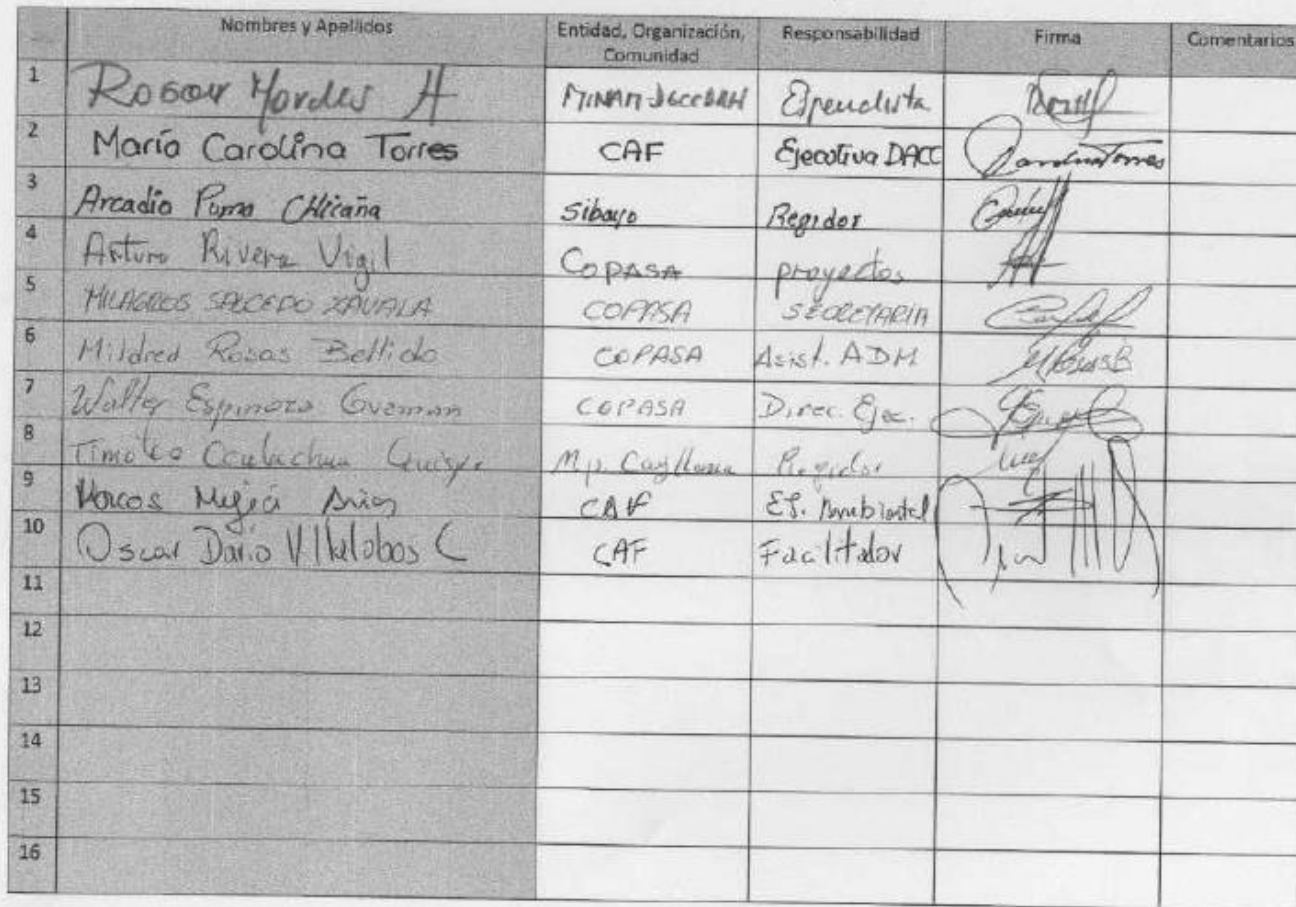 Nombres y Apellidos Entidad, Organización, Comunidad Responsabilidad Firma Comentarios
1 MINAM
2 María Carolina Torres CAF Ejecutiva DACC Carolina Torres
3 Arcadio Puma CHicaña Sibayo Regidor
4 Arturo Rivera Vigil COPASA proyectos
5 MILAGROS SALCEDO ZAVALA COPASA SECRETARIA
6 Mildred Rosas Bellido COPASA Asist. ADM MRosasB
7 Walter Espinoza Guzman COPASA Direc. Ejec.
8 Timoteo Mp. Caylloma Regidor
9 Marcos Mejía CAF Ambiental
10 Oscar Dario Villalobos C CAF Facilitador
11
12
13
14
15
16